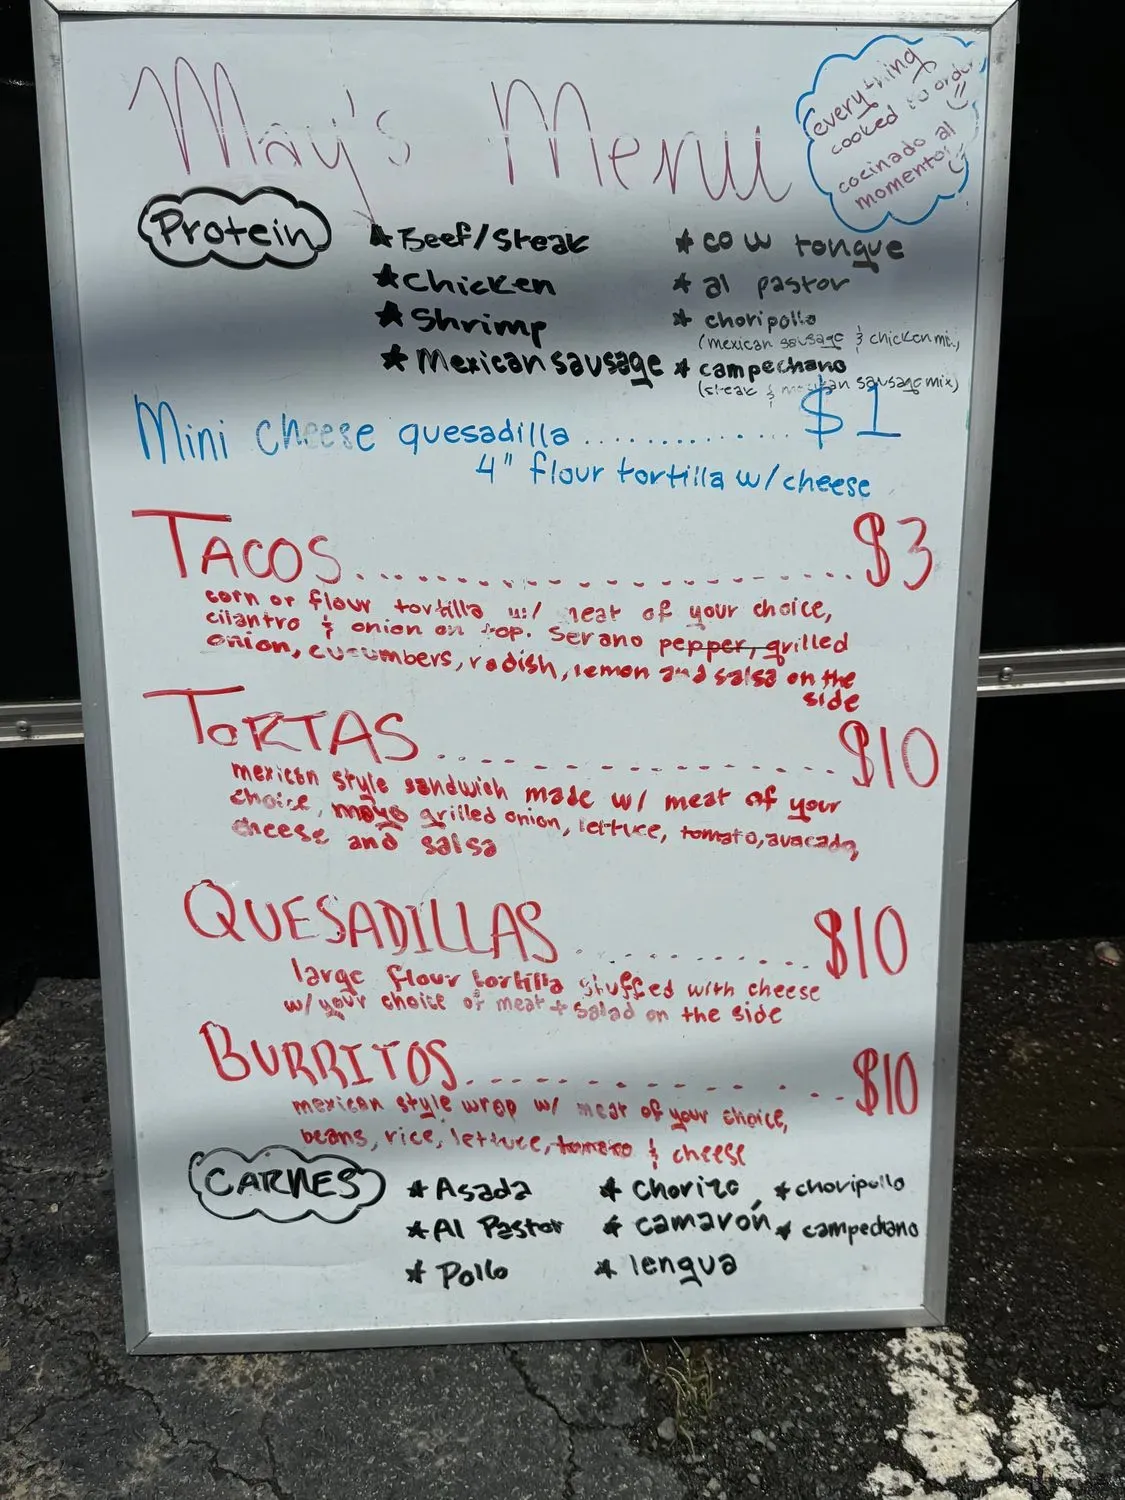 May's Menu
everything
cooked to order
cocinado al
momento!
Protein
★ Beef/Steak
★ Chicken
★ Shrimp
★ Mexican sausage
★ cow tongue
★ al pastor
★ choripollo
(mexican sausage & chicken mi
★ campechano
(steak & mexican sausage mix)
Mini cheese quesadilla ............... $1
4" flour tortilla w/cheese
TACOS........................ $3
corn or flour tortilla w/ meat of your choice,
cilantro & onion on top. Serano pepper, grilled
onion, cucumbers, radish, lemon and salsa on the
side
TORTAS...................... $10
mexican style sandwich made w/ meat of your
choice, mayo grilled onion, lettuce, tomato, avacado,
cheese and salsa
QUESADILLAS ............ $10
large flour tortilla stuffed with cheese
w/ your choice of meat + salad on the side
BURRITOS.................. $10
mexican style wrap w/ meat of your choice,
beans, rice, lettuce, tomato & cheese
CARNES
★ Asada
★ Al Pastor
★ Pollo
★ Chorizo
★ camarón
★ lengua
★ choripollo
★ campechano